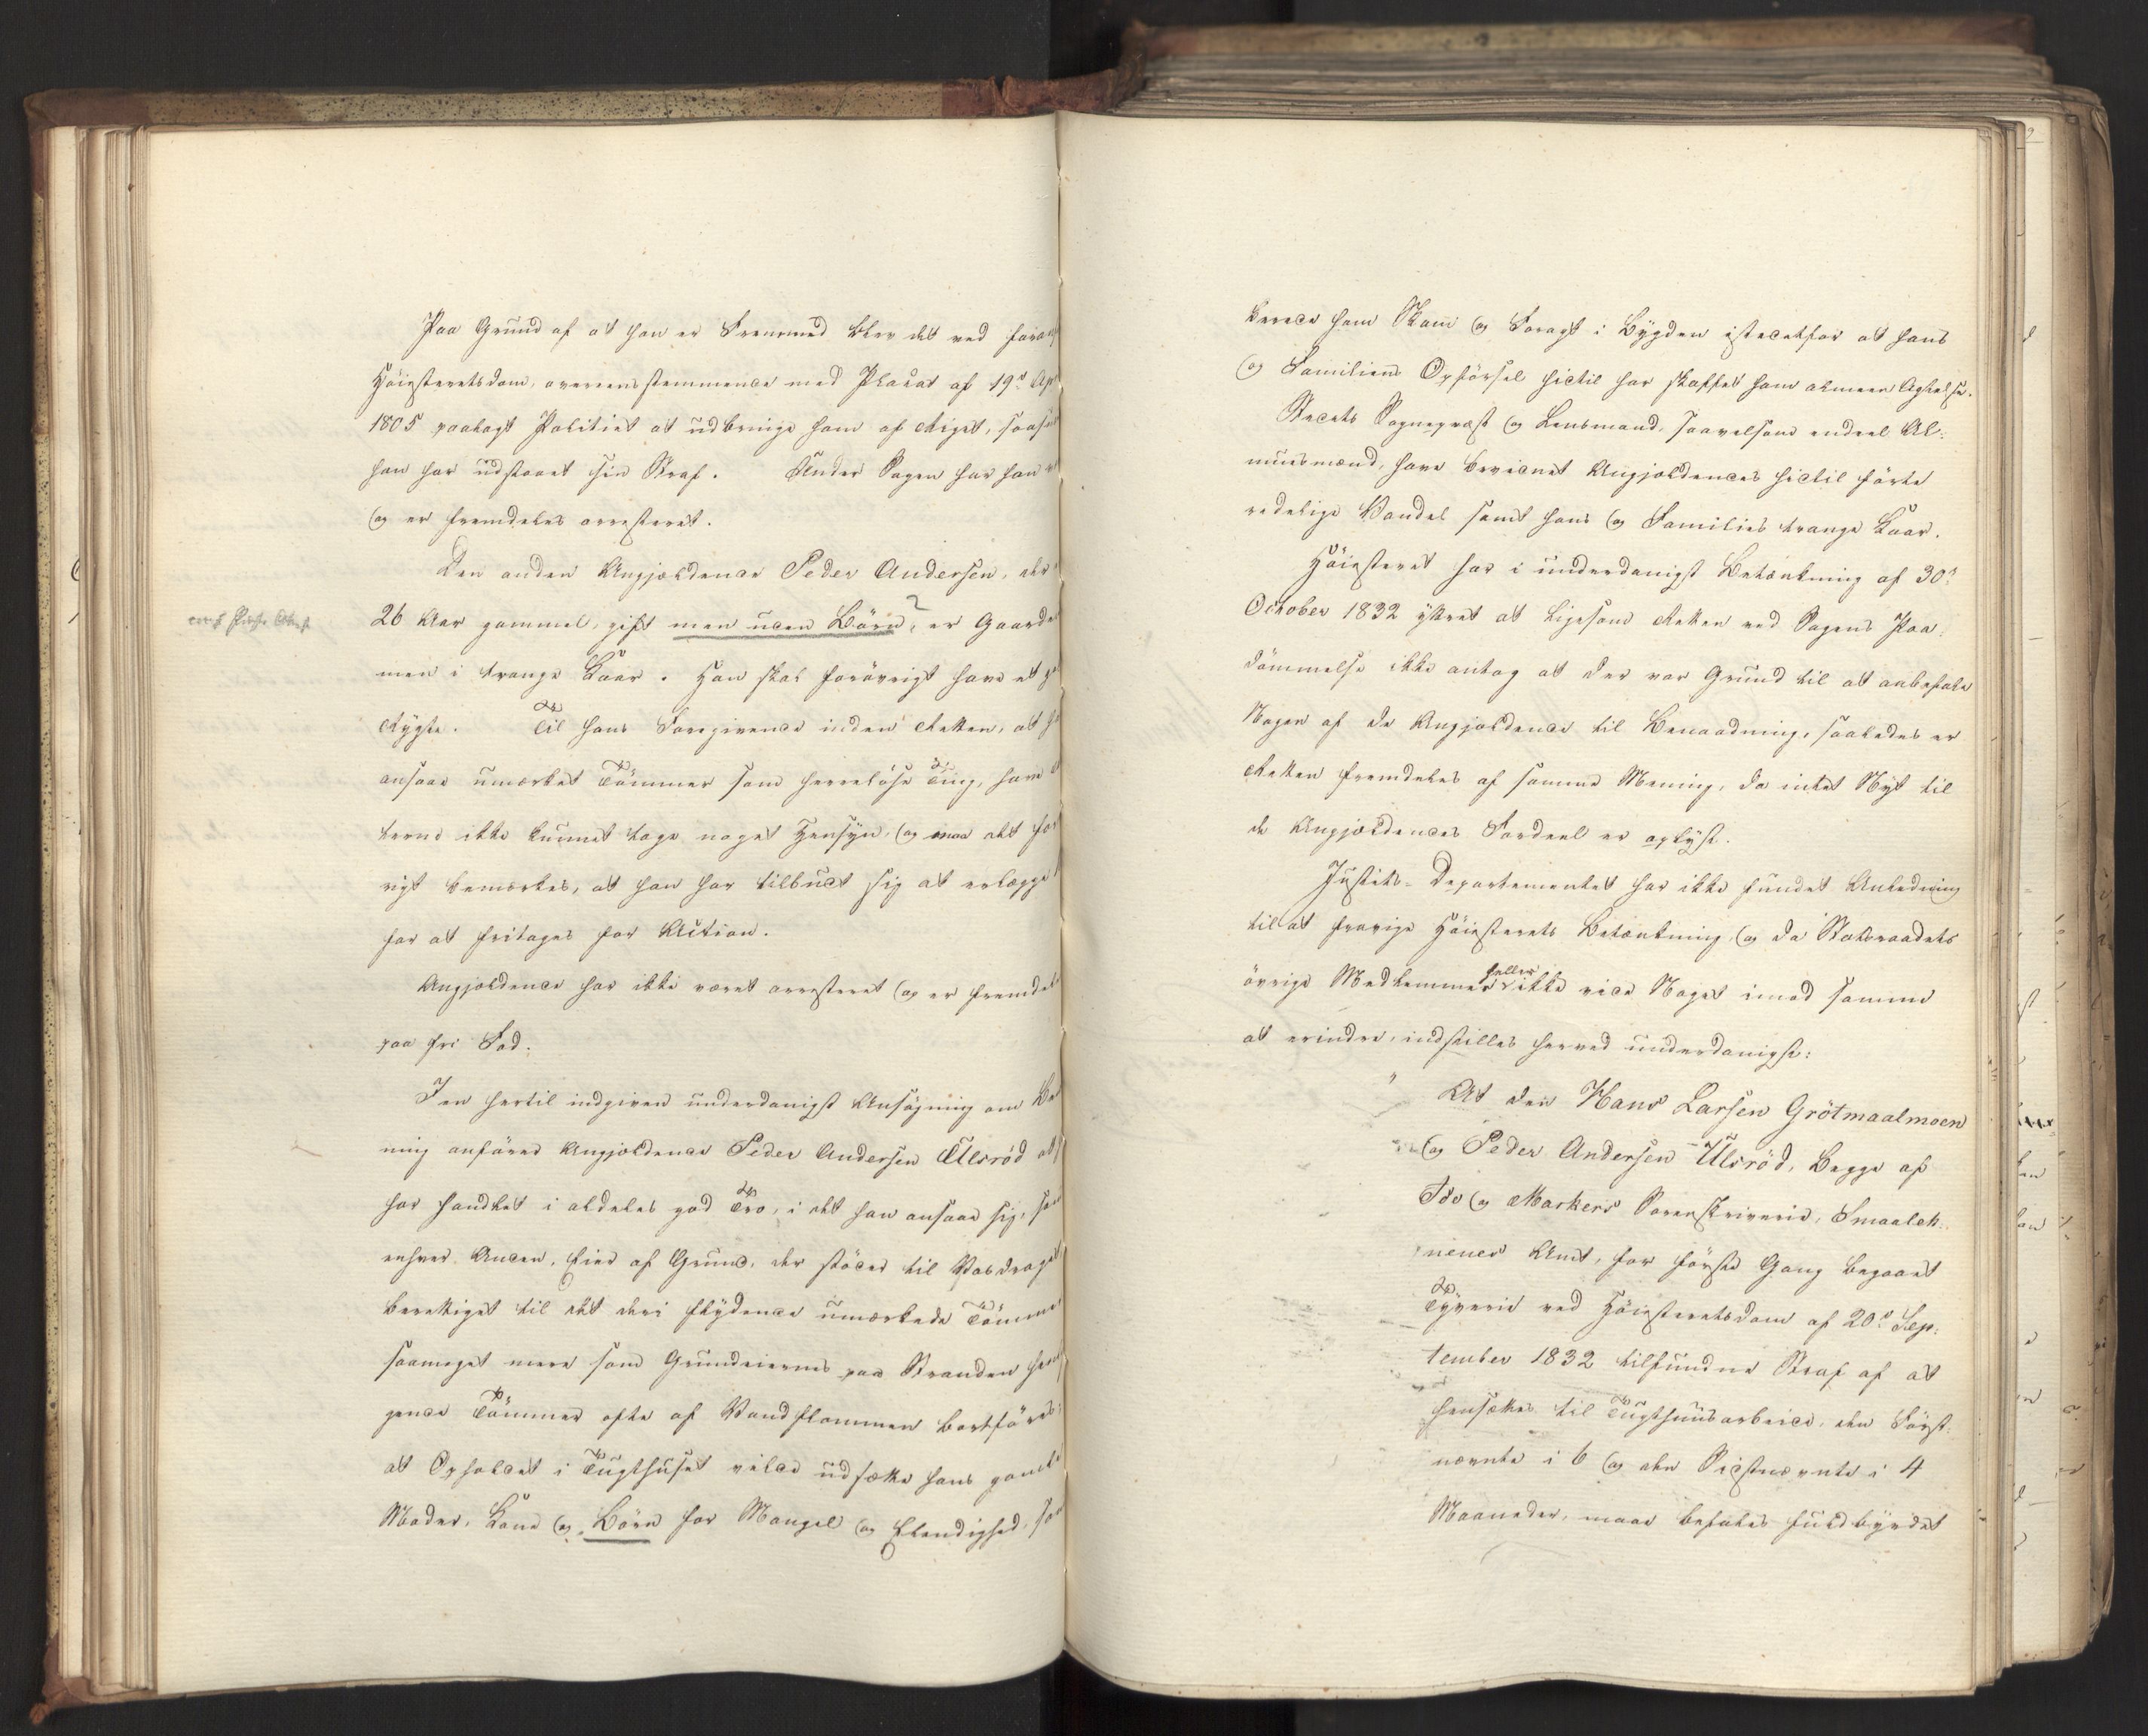 Paa Grund af at han er Fremmed blev det ved foran
Höiesteretsdom, overeensstemmende med Placat af 19de Ap
1805 paalagt Politiet at udbringe ham af Riget, saasn
han har udstaaet sin Straf. Under Sagen har han
og er fremdeles arresteret.
Den anden Angjældende Peder Andersen, der
26 Aar gammel, gift men uden Börn, er Gaard
?
conf
men i trange Kaar. Han skal forövrigt have et g
Rygte. Til hans Foregivende inden Retten, at h
ansaae umærket Tömmer som herrelöse Ting, have
terne ikke kunnet tage noget Hensyn, og maa det for
rigt bemærkes, at han har tilbudt sig at erlægge
for at fritages for Action.
Angjældende har ikke været arresteret og er fremdel
paa fri Fod.
I en hertil indgiven underdanigst Ansögning om Be
ning anförer Angjældende Peder Andersen Ulsröd at
har handlet i aldeles god Tro, i det han ansaae sig, som
enhver Anden, Eier af Grund, der stöder til Vasdraget
berettiget til det deri flydende umærkede Tömme
saameget mere som Grundeiernes paa Stranden hen
gende Tömmer ofte af Vandflommen bortföres;
at Opholdet i Tugthuset vilde udsætte hans gamle
Moder, Kone og Börn for Mangel og Elendighed, sa
berede ham Skam og Foragt i Bygden istedetfor at hans
og Familiens Opförsel hidtil har skaffet ham almeen Agtelse.
Stedets Sognepræst og Lensmand, saavelsom endeel Al:
muesmænd, have bevidnet Angjældendes hidtil förte
redelige Vandel samt hans og Families trange Kaar.
Höiesteret har i underdanigst Betænkning af 30de
October 1832 yttret at ligesom Retten ved Sagens Paa:
dömmelse ikke antog at der var Grund til at anbefale
Nogen af de Angjældende til Benaadning, saaledes er
Retten fremdeles af samme Mening, da intet Nyt til
de Angjældendes Fordeel er oplyst.
Justits-Departementet har ikke fundet Anledning
til at fravige Höiesterets Betænkning, og da Statsraadets
övrige Medlemmer heller ikke vide Noget imod samme
at erindre, indstilles herved underdanigst:
" At den Hans Larsen Grötmaalmoen
og Peder Andersen Ulsröd, begge af
Ide og Markers Sorenskriverie, Smaaleh:
nenes Amt, for förste Gang begaaet
Tyverie ved Höiesteretsdom af 20de Sep:
tember 1832 tilfundne Straf af at
hensættes til Tugthuusarbeide, den Först:
nævnte i 6 og den Sidstnævnte i 4
Maaneder, maae befales fuldbyrdet